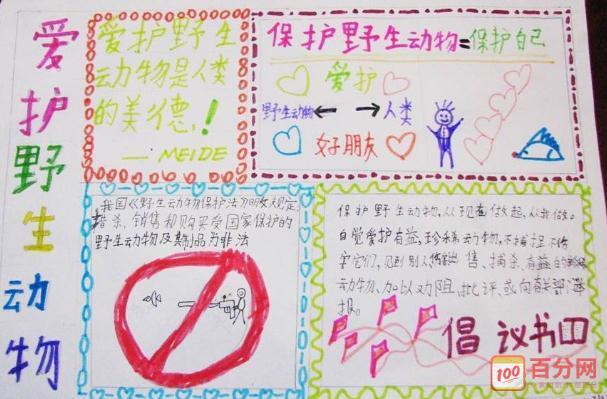 爱护野生动物
爱护野生
动物是人类
的美德！
—MEIDE
保护野生动物=保护自己
爱护
野生动物
人类
好朋友
我国《野生动物保护法》明文规定,
猎杀、销售和购买受国家保护的
野生动物及其制品为非法
保护野生动物,从现在做起,从我做。
自觉爱护有益,珍稀动物,不捕捉不伤
害它们,见到别人 售、捕杀、有益的
动物、加以劝阻、批评、或向有关部
报。
倡议书
100百分网